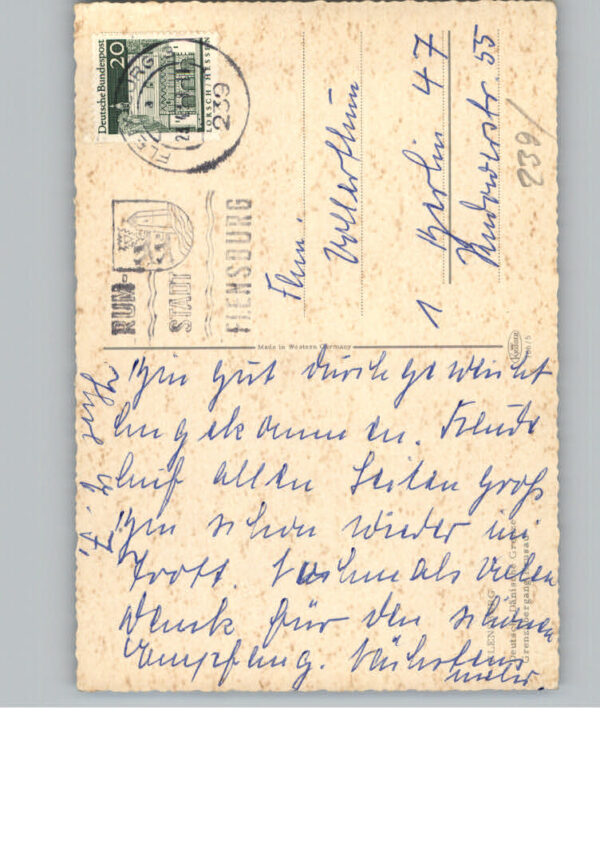 Deutsche Bundespost
20
LORSCH / HESSEN
FLENSBURG
239
RUM-
STADT
FLENSBURG
Fam.
Vollerthum
1 Berlin 47
Rudowerstr. 55
239/
Made in Western Germany
166/5
Bin gut durchgeweicht
angekommen. Freude
auf allen Seiten groß
Bin schon wieder im
Trott. Nochmals vielen
Dank für den schönen
Empfang. Nächstens
mehr.
FLENSBURG
Deutsch-Dänische Grenze
Grenzübergang Krusau